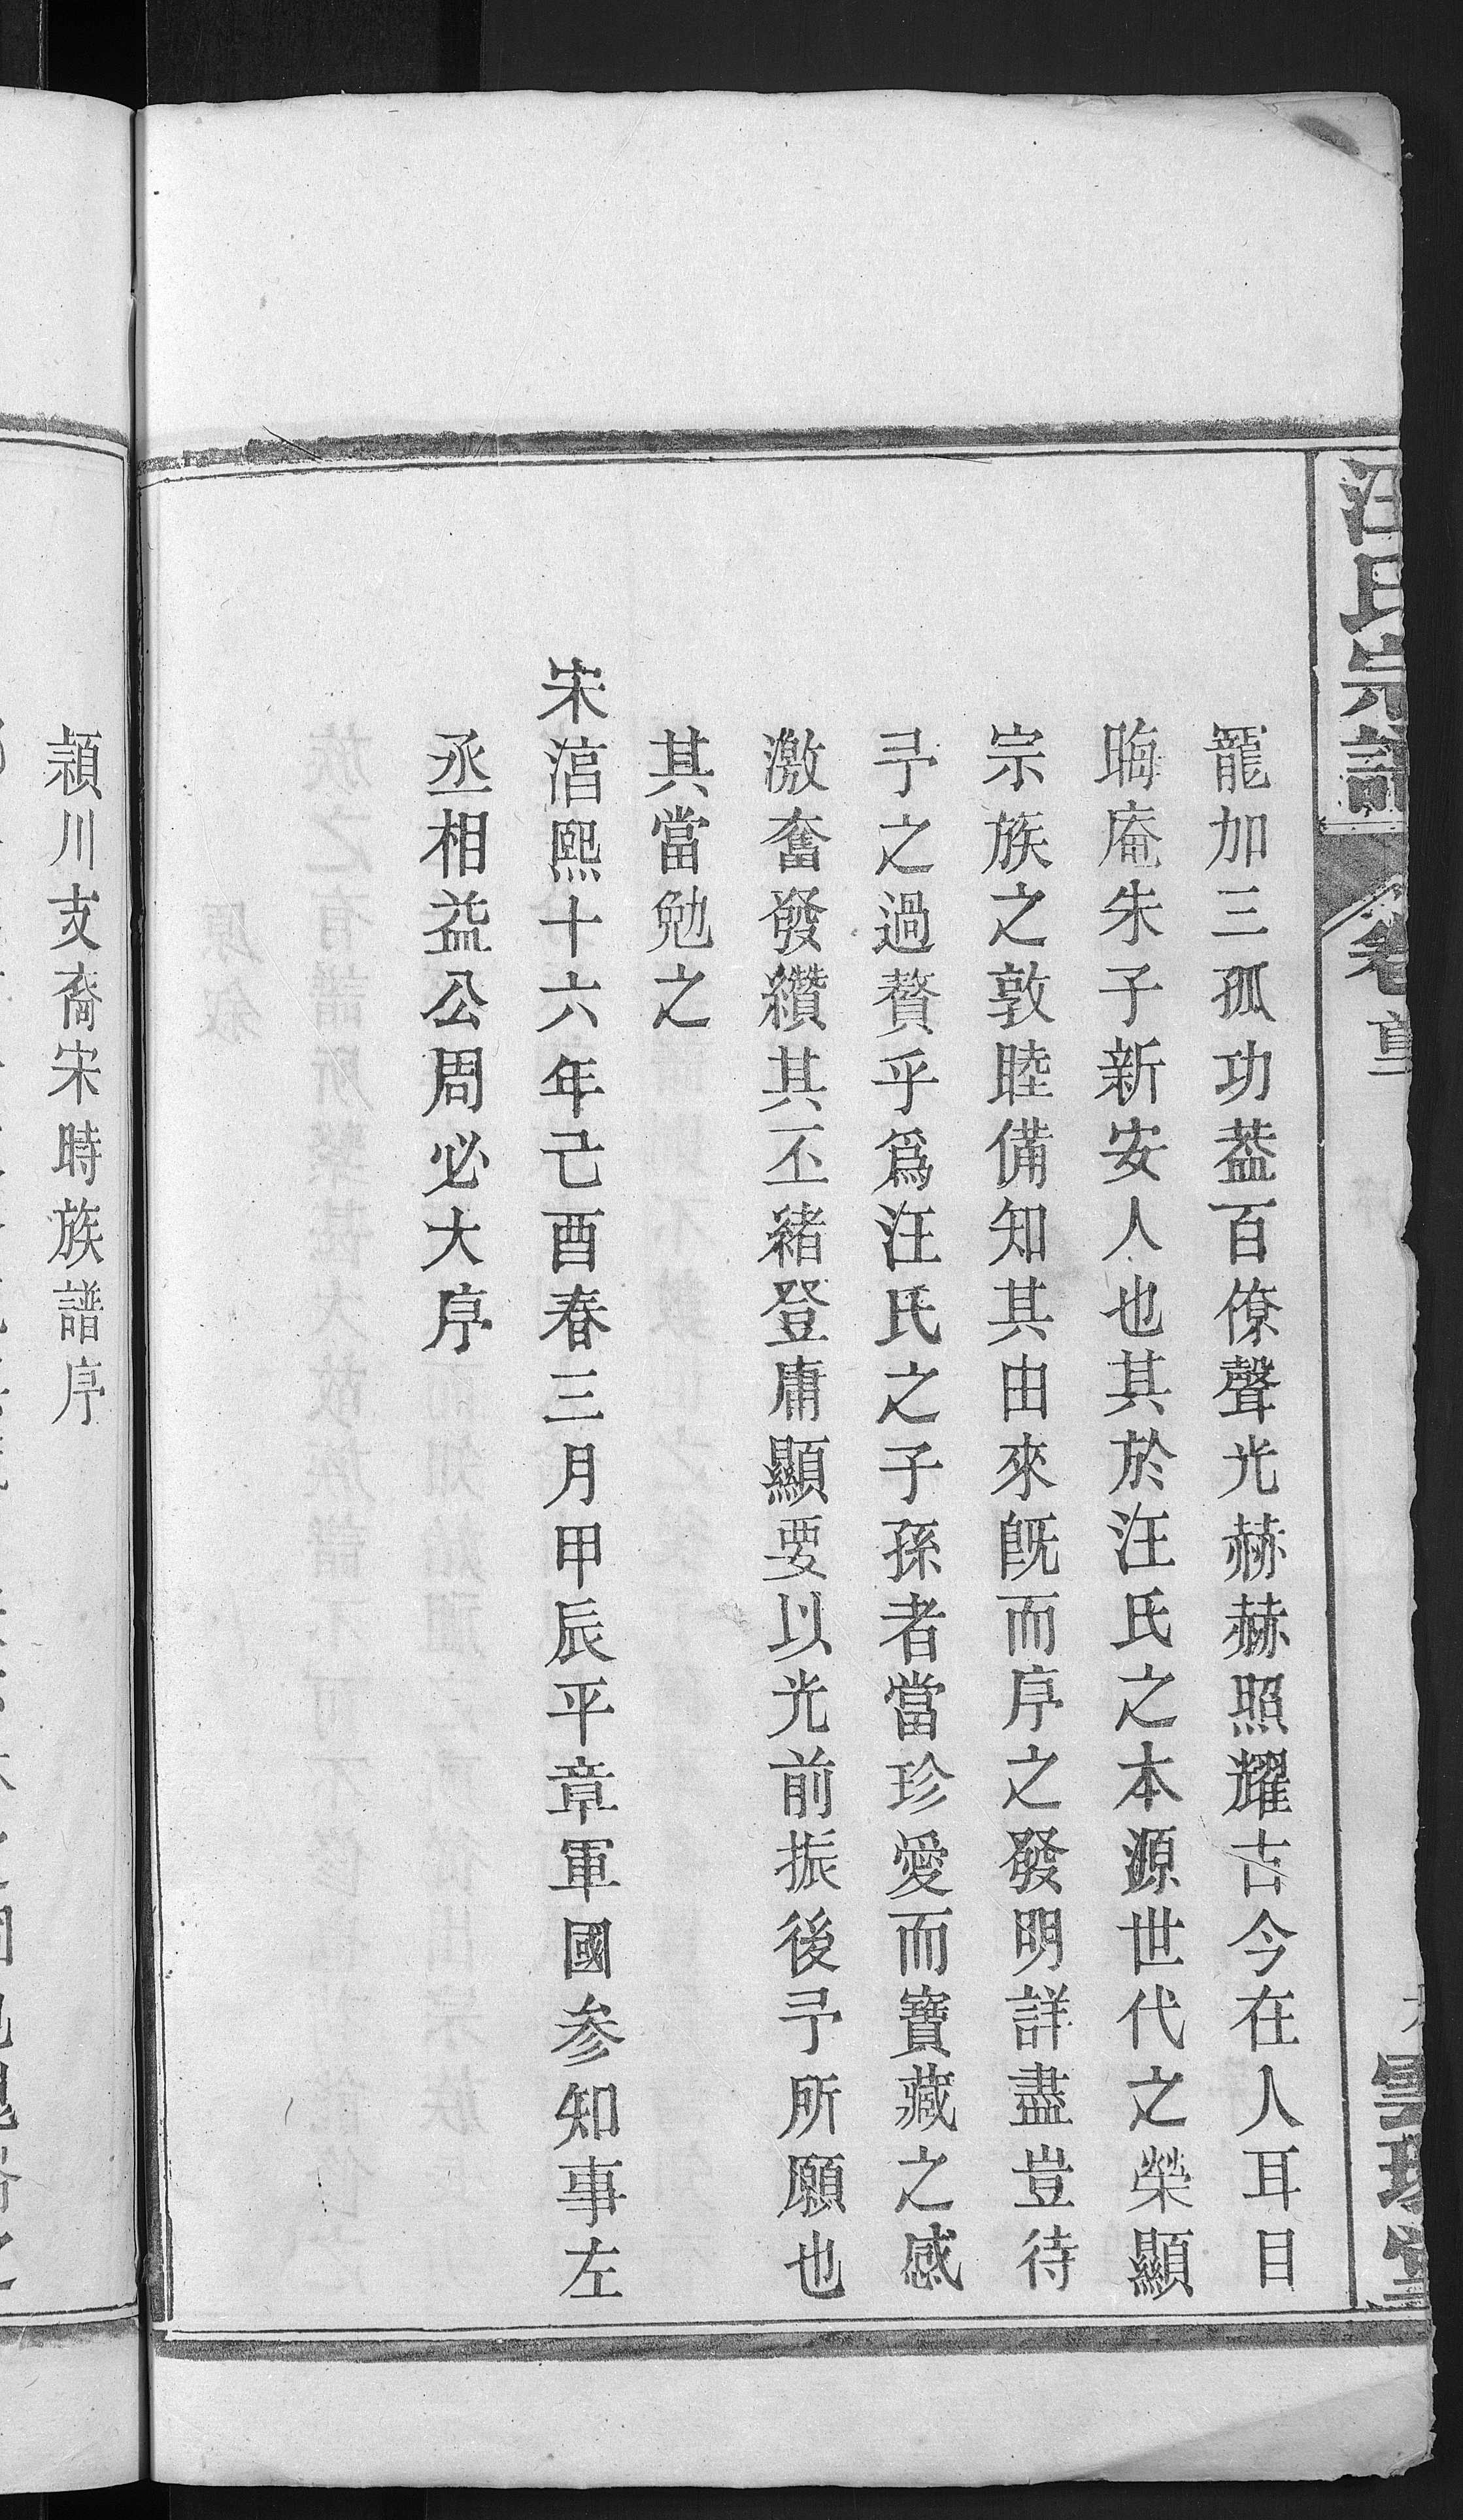 汪氏宗譜
卷首
寵加三孤功葢百僚聲光赫赫照耀古今在人耳目
晦庵朱子新安人也其於汪氏之本源世代之榮顯
宗族之敦睦備知其由來既而序之發明詳盡豈待
予之過贅乎爲汪氏之子孫者當珍愛而寶藏之感
激奮發纘其丕緒登庸顯要以光前振後予所願也
其當勉之
宋湻熙十六年己酉春三月甲辰平章軍國參知事左
丞相益公周必大序
頴川支裔宋時族譜序